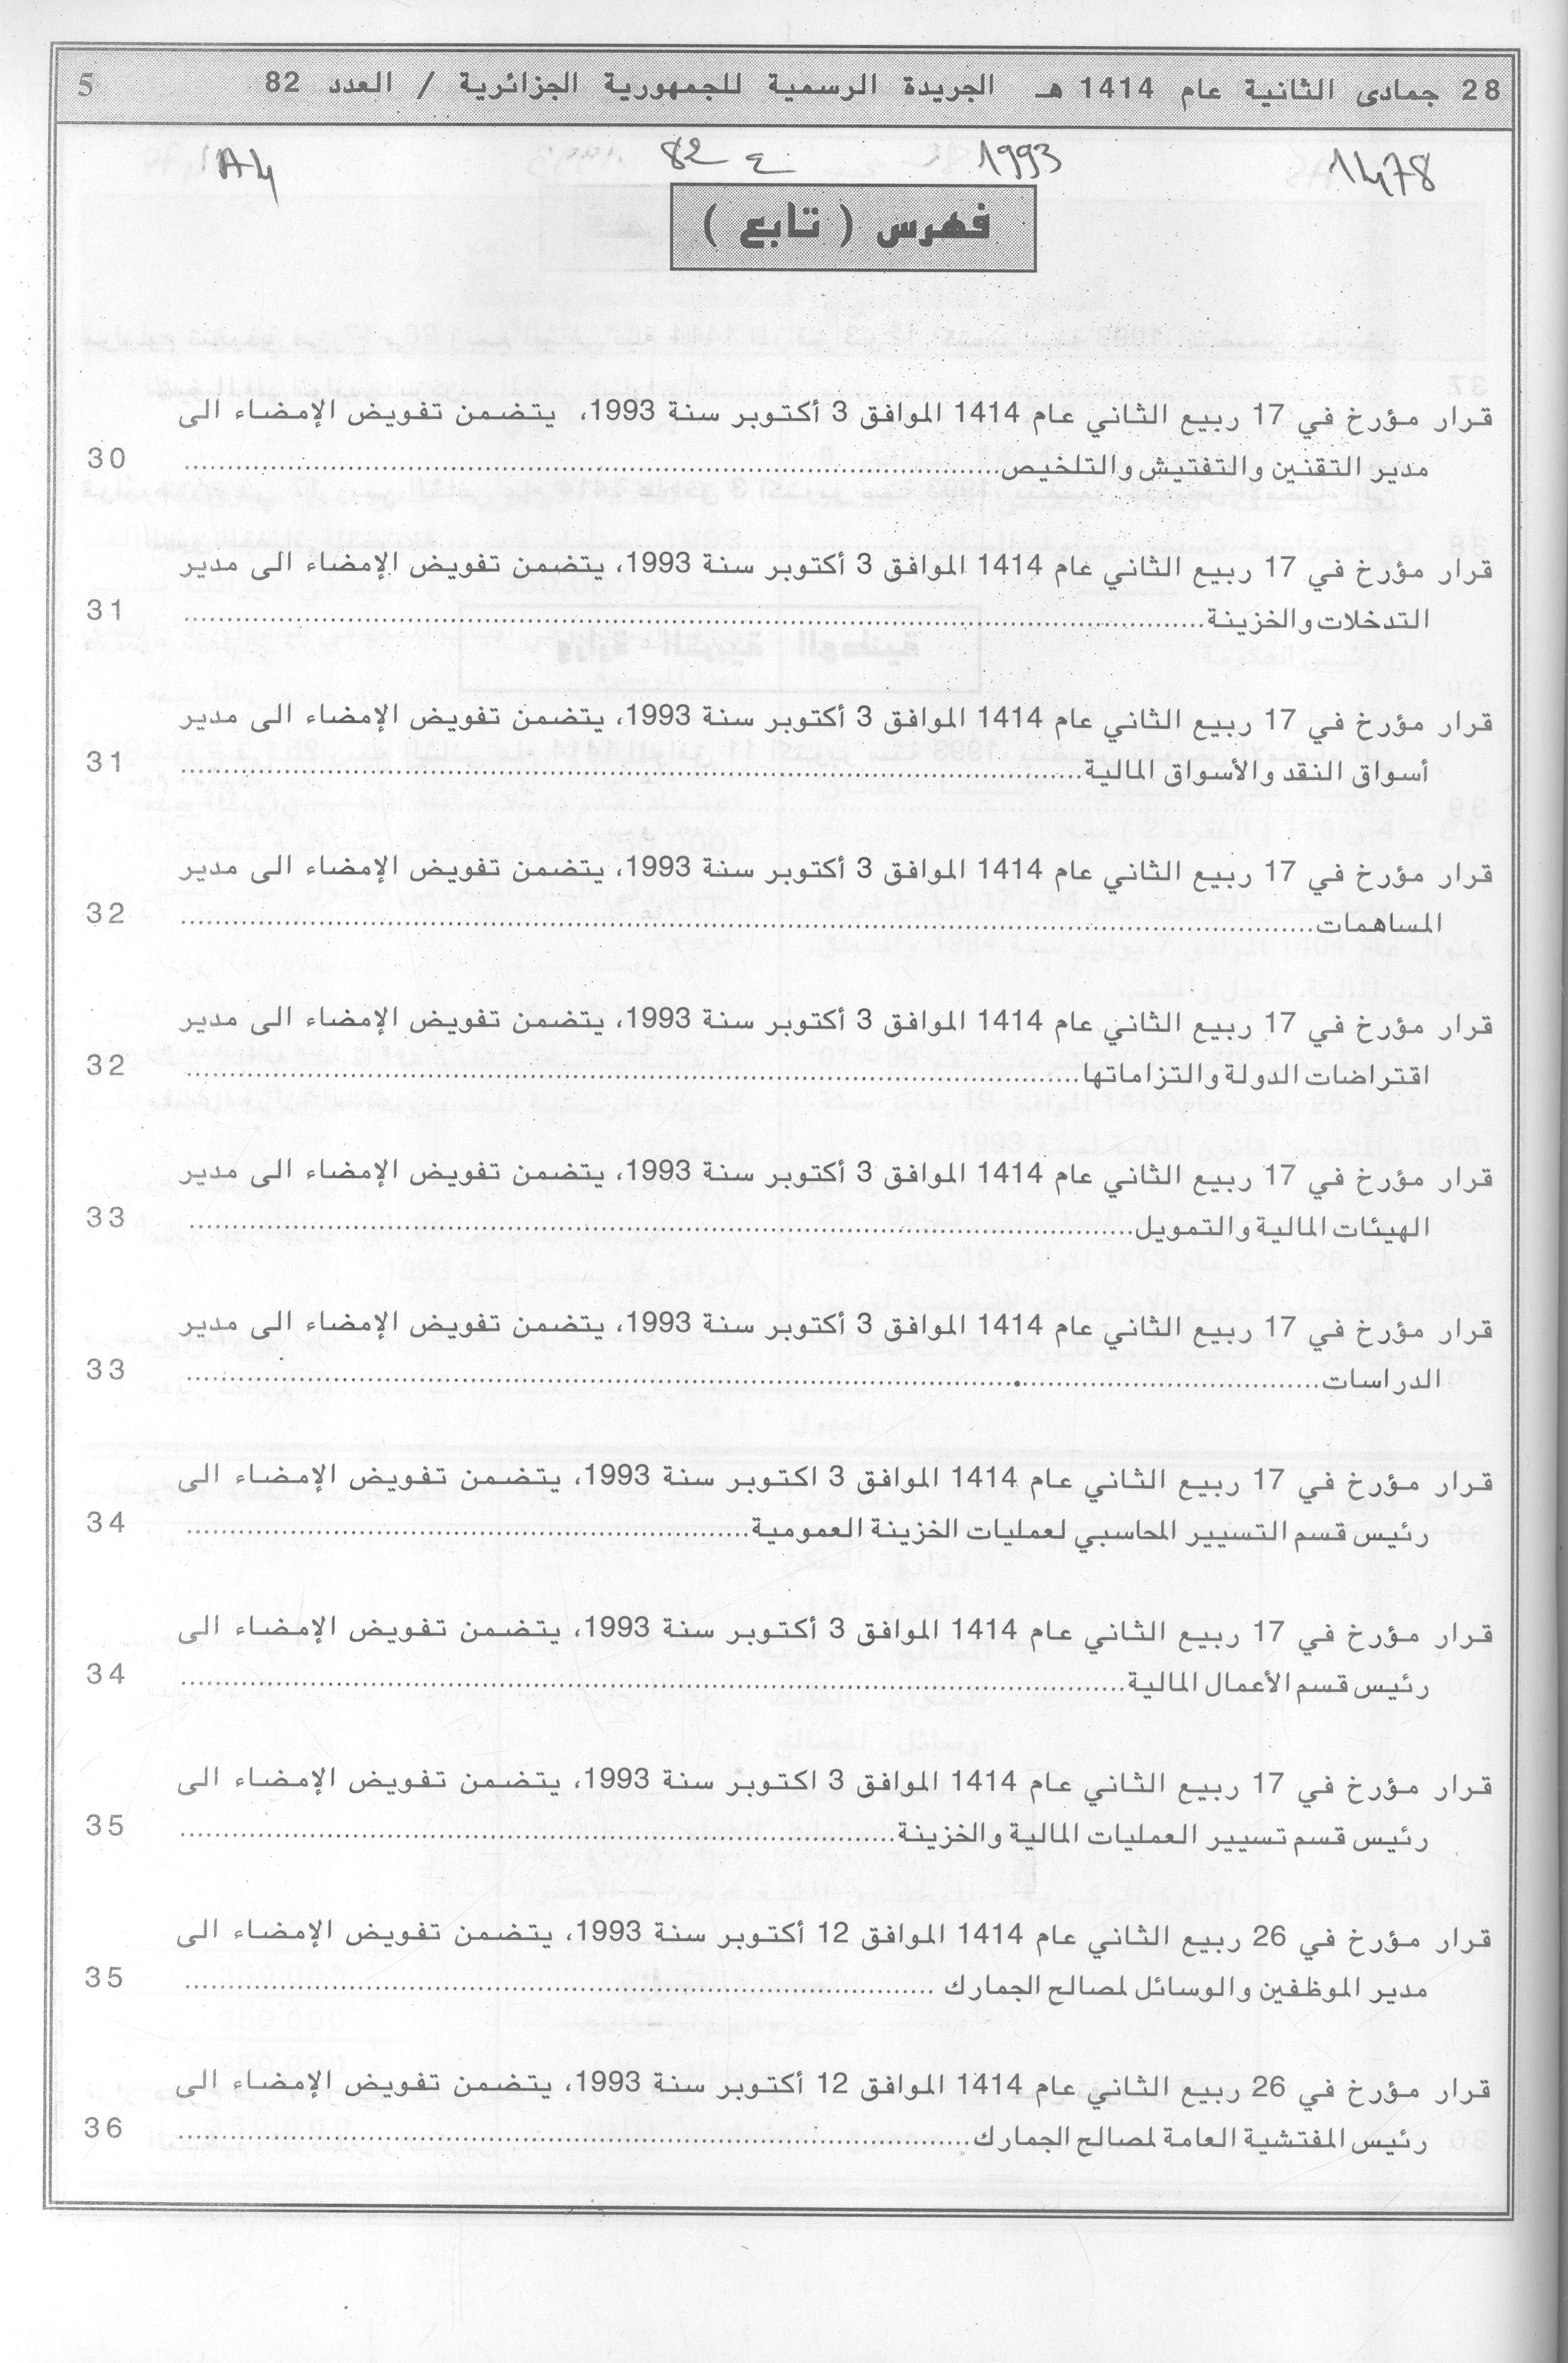 28 جمادى الثانية عام 1414 هـ الجريدة الرسمية للجمهورية الجزائرية / العدد 82 5
1478 1993 ع 82 A4
فهرس ( تابع )
قرار مؤرخ في 17 ربيع الثاني عام 1414 الموافق 3 أكتوبر سنة 1993، يتضمن تفويض الإمضاء الى
مدير التقنين والتفتيش والتلخيص 30
قرار مؤرخ في 17 ربيع الثاني عام 1414 الموافق 3 أكتوبر سنة 1993، يتضمن تفويض الإمضاء الى مدير
التدخلات والخزينة 31
قرار مؤرخ في 17 ربيع الثاني عام 1414 الموافق 3 أكتوبر سنة 1993، يتضمن تفويض الإمضاء الى مدير
أسواق النقد والأسواق المالية 31
قرار مؤرخ في 17 ربيع الثاني عام 1414 الموافق 3 أكتوبر سنة 1993، يتضمن تفويض الإمضاء الى مدير
المساهمات 32
قرار مؤرخ في 17 ربيع الثاني عام 1414 الموافق 3 أكتوبر سنة 1993، يتضمن تفويض الإمضاء الى مدير
اقتراضات الدولة والتزاماتها 32
قرار مؤرخ في 17 ربيع الثاني عام 1414 الموافق 3 أكتوبر سنة 1993، يتضمن تفويض الإمضاء الى مدير
الهيئات المالية والتمويل 33
قرار مؤرخ في 17 ربيع الثاني عام 1414 الموافق 3 أكتوبر سنة 1993، يتضمن تفويض الإمضاء الى مدير
الدراسات 33
قرار مؤرخ في 17 ربيع الثاني عام 1414 الموافق 3 اكتوبر سنة 1993، يتضمن تفويض الإمضاء الى
رئيس قسم التسيير المحاسبي لعمليات الخزينة العمومية 34
قرار مؤرخ في 17 ربيع الثاني عام 1414 الموافق 3 أكتوبر سنة 1993، يتضمن تفويض الإمضاء الى
رئيس قسم الأعمال المالية 34
قرار مؤرخ في 17 ربيع الثاني عام 1414 الموافق 3 اكتوبر سنة 1993، يتضمن تفويض الإمضاء الى
رئيس قسم تسيير العمليات المالية والخزينة 35
قرار مؤرخ في 26 ربيع الثاني عام 1414 الموافق 12 أكتوبر سنة 1993، يتضمن تفويض الإمضاء الى
مدير الموظفين والوسائل لمصالح الجمارك 35
قرار مؤرخ في 26 ربيع الثاني عام 1414 الموافق 12 أكتوبر سنة 1993، يتضمن تفويض الإمضاء الى
رئيس المفتشية العامة لمصالح الجمارك 36